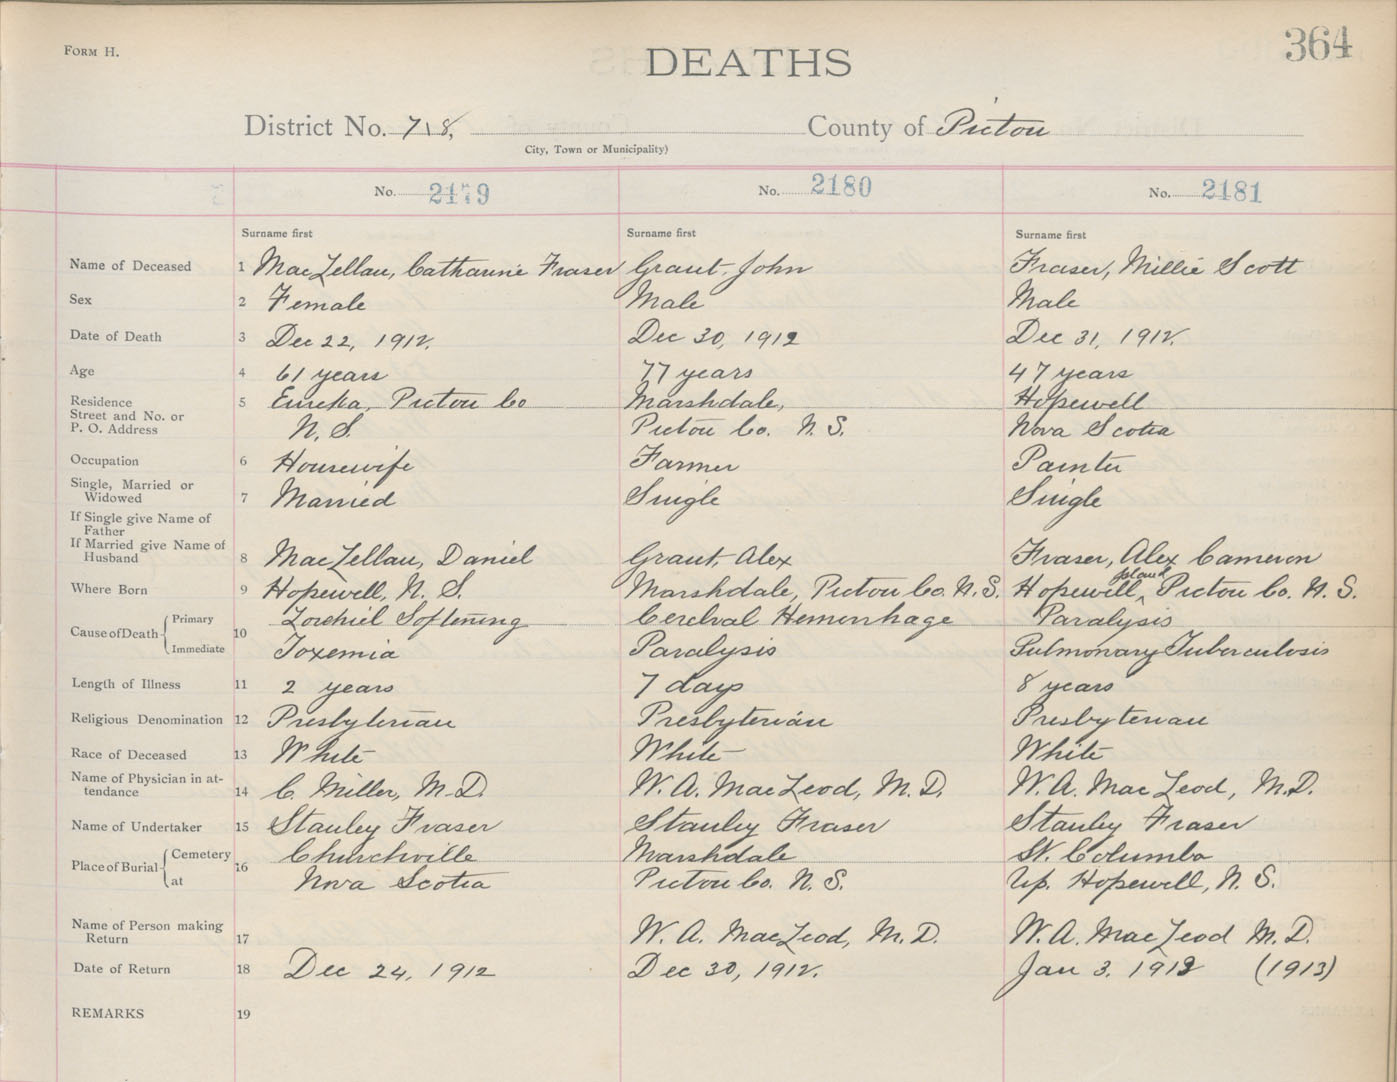 FORM H.
364
DEATHS
District No. 718, County of Pictou
City, Town or Municipality)
No. 2179 No. 2180 No. 2181
Surname first Surname first Surname first
Name of Deceased 1 MacLellan, Catharine Fraser Grant, John Fraser, Millie Scott
Sex 2 Female Male Male
Date of Death 3 Dec 22, 1912. Dec 30, 1912 Dec 31, 1912.
Age 4 61 years 77 years 47 years
Residence 5 Eureka, Pictou Co Marshdale, Hopewell
Street and No. or
P. O. Address N. S. Pictou Co. N. S. Nova Scotia
Occupation 6 Housewife Farmer Painter
Single, Married or
Widowed 7 Married Single Single
If Single give Name of
Father
If Married give Name of
Husband 8 MacLellan, Daniel Grant, Alex Fraser, Alex Cameron
Where Born 9 Hopewell, N. S. Marshdale, Pictou Co. N. S. Hopewell, Pictou Co. N. S.
Cause of Death 10 Primary Softening Cerebral Hemorrhage Paralysis
Immediate Toxemia Paralysis Pulmonary Tuberculosis
Length of Illness 11 2 years 7 days 8 years
Religious Denomination 12 Presbyterian Presbyterian Presbyterian
Race of Deceased 13 White White White
Name of Physician in at-
tendance 14 C. Miller, M.D. W. A. MacLeod, M. D. W. A. MacLeod, M.D.
Name of Undertaker 15 Stanley Fraser Stanley Fraser Stanley Fraser
Place of Burial 16 Cemetery Churchville Marshdale St. Columba
at Nova Scotia Pictou Co. N. S. Up. Hopewell, N. S.
Name of Person making
Return 17 W. A. MacLeod, M. D. W. A. MacLeod M. D.
Date of Return 18 Dec 24, 1912 Dec 30, 1912. Jan 3. 1912 (1913)
REMARKS 19